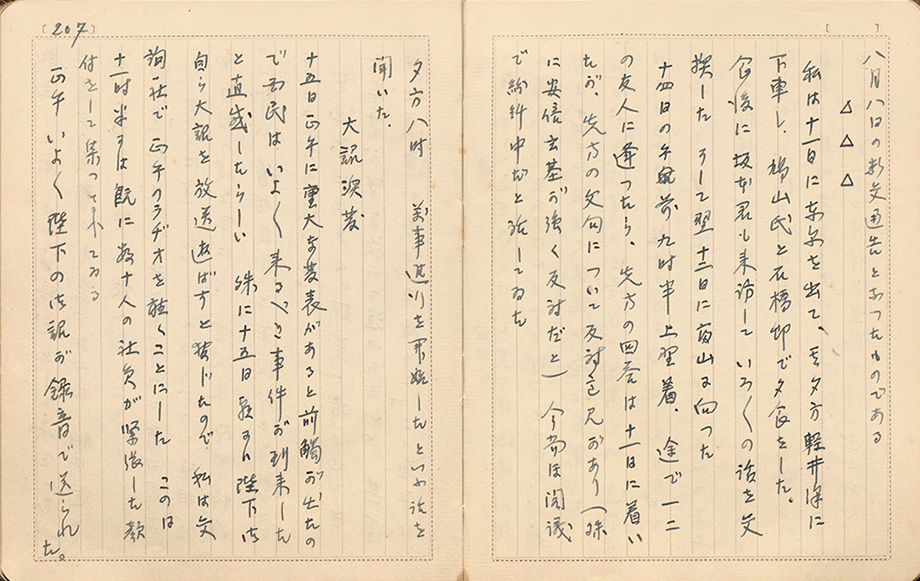 〔207〕
八月八日の通告とあつたものである
△ △ △
私は十一日に東京を出て、其夕方軽井澤に
下車し、鳩山氏と石橋邸で夕食をした。
食後に坂本君も来訪していろ〱の話を交
換した そして翌十二日に富山に向つた
十四日の午前九時半上野着、途で一二
の友人に逢つたら、先方の回答は十一日に着い
たが、先方の文句について反対意見があり(殊
に安倍玄基が強く反対だと) 今尚ほ閣議
で紛糾中だと話してゐた
夕方八時 万事進行を開始したといふ話を
聞いた。
大詔渙発
十五日正午に重大な発表があると前触が出たの
で国民はいよ〱来るべき事件が到来した
と直感したらしい 殊に十五日 陛下御
自ら大詔を放送遊ばすと報じたので 私は交
詢社で正午のラヂオを聴くことにした この日
十一時半には既に数十人の社員が緊張した顔
付をして集つて来てゐる
正午いよ〱陛下の御詔が録音で送られた。